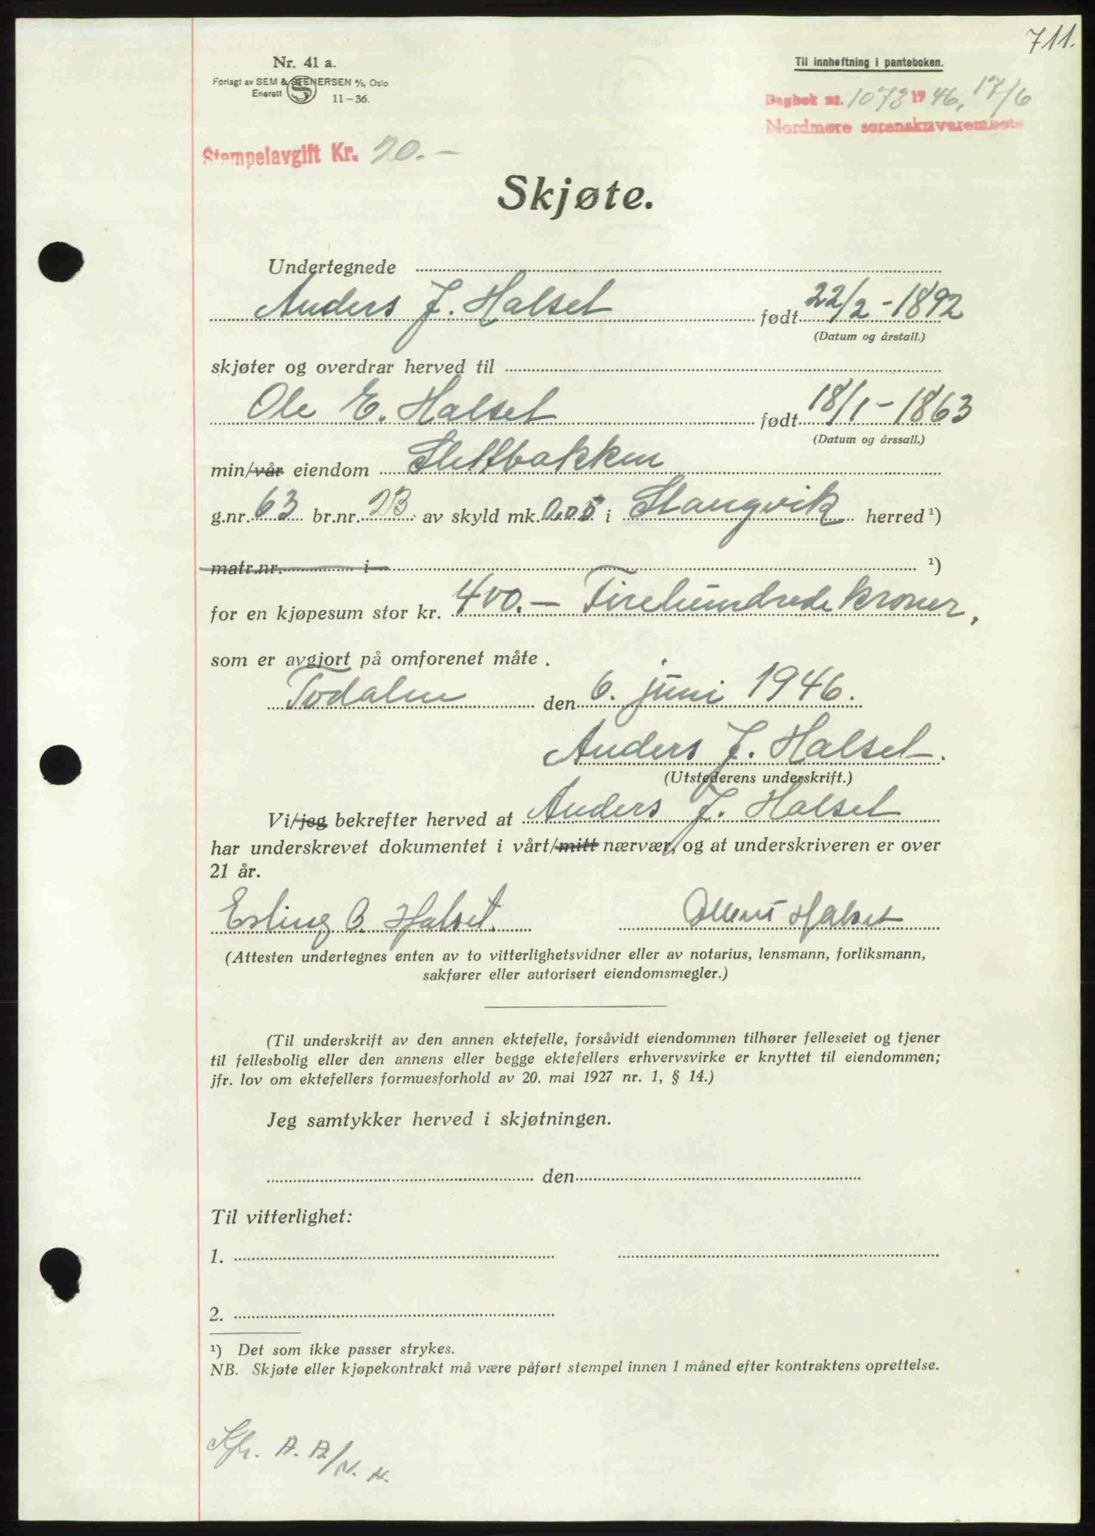 711.
Nr. 41 a.
Forlagt av SEM & STENERSEN A/S, Oslo
Enerett 11-36.
Til innheftning i panteboken.
Dagbok nr. 1073 1946, 17/6
Nordmøre sorenskriverembete
Stempelavgift Kr. 20.-
Skjøte.
Undertegnede
Anders J. Halset født 22/2-1892
(Datum og årstall.)
skjøter og overdrar herved til
Ole E. Halset født 18/1-1863
(Datum og årssall.)
min/vår eiendom Slettbakken
g.nr. 63 br.nr. 23 av skyld mk. 0,05 i Stangvik herred ¹)
matr.nr. i ¹)
for en kjøpesum stor kr. 400.- Firehundrede kroner,
som er avgjort på omforenet måte.
Todalen den 6. juni 1946.
Anders J. Halset.
(Utstederens underskrift.)
Vi/jeg bekrefter herved at Anders J. Halset
har underskrevet dokumentet i vårt/mitt nærvær, og at underskriveren er over
21 år.
Erling O. Halset. Halset
(Attesten undertegnes enten av to vitterlighetsvidner eller av notarius, lensmann, forliksmann,
sakfører eller autorisert eiendomsmegler.)
(Til underskrift av den annen ektefelle, forsåvidt eiendommen tilhører felleseiet og tjener
til fellesbolig eller den annens eller begge ektefellers erhvervsvirke er knyttet til eiendommen;
jfr. lov om ektefellers formuesforhold av 20. mai 1927 nr. 1, § 14.)
Jeg samtykker herved i skjøtningen.
den
Til vitterlighet:
1.
2.
¹) Det som ikke passer strykes.
NB. Skjøte eller kjøpekontrakt må være påført stempel innen 1 måned efter kontraktens oprettelse.